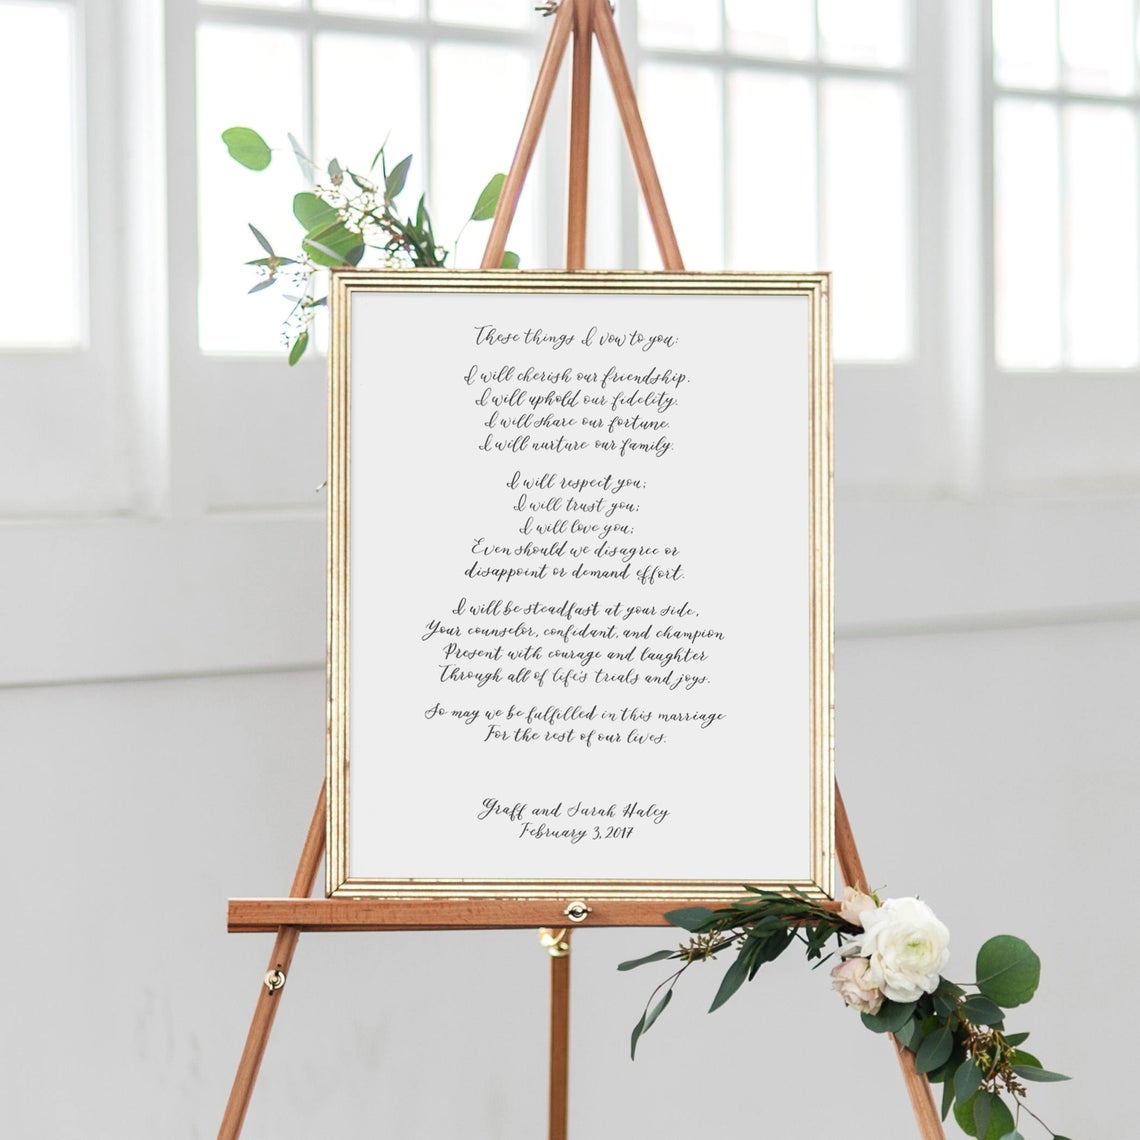 These things I vow to you:
I will cherish our friendship.
I will uphold our fidelity.
I will share our fortune.
I will nurture our family.
I will respect you;
I will trust you;
I will love you;
Even should we disagree or
disappoint or demand effort.
I will be steadfast at your side,
Your counselor, confidant, and champion
Present with courage and laughter
Through all of life's trials and joys.
So may we be fulfilled in this marriage
For the rest of our lives.
Graff and Sarah Haley
February 3, 2017